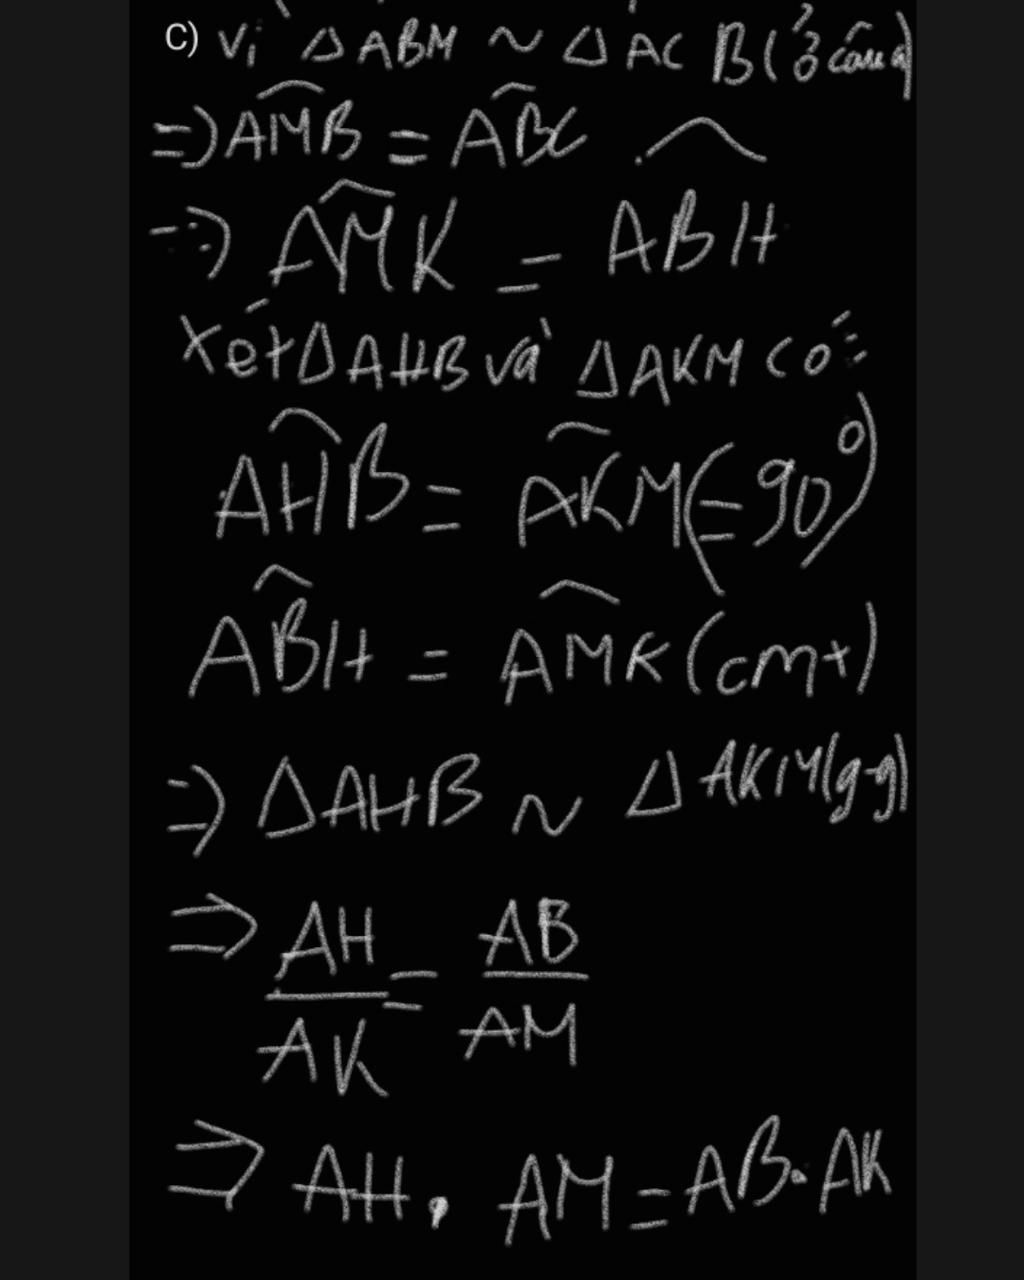 c) Vì ΔABM ~ ΔACB (ở câu a)
=> \widehat{AMB} = \widehat{ABC}
=> \widehat{AMK} = \widehat{ABH}
Xét ΔAHB và ΔAKM có:
\widehat{AHB} = \widehat{AKM} (=90°)
\widehat{ABH} = \widehat{AMK} (cmt)
=> ΔAHB ~ ΔAKM (g-g)
=> \frac{AH}{AK} = \frac{AB}{AM}
=> AH . AM = AB . AK